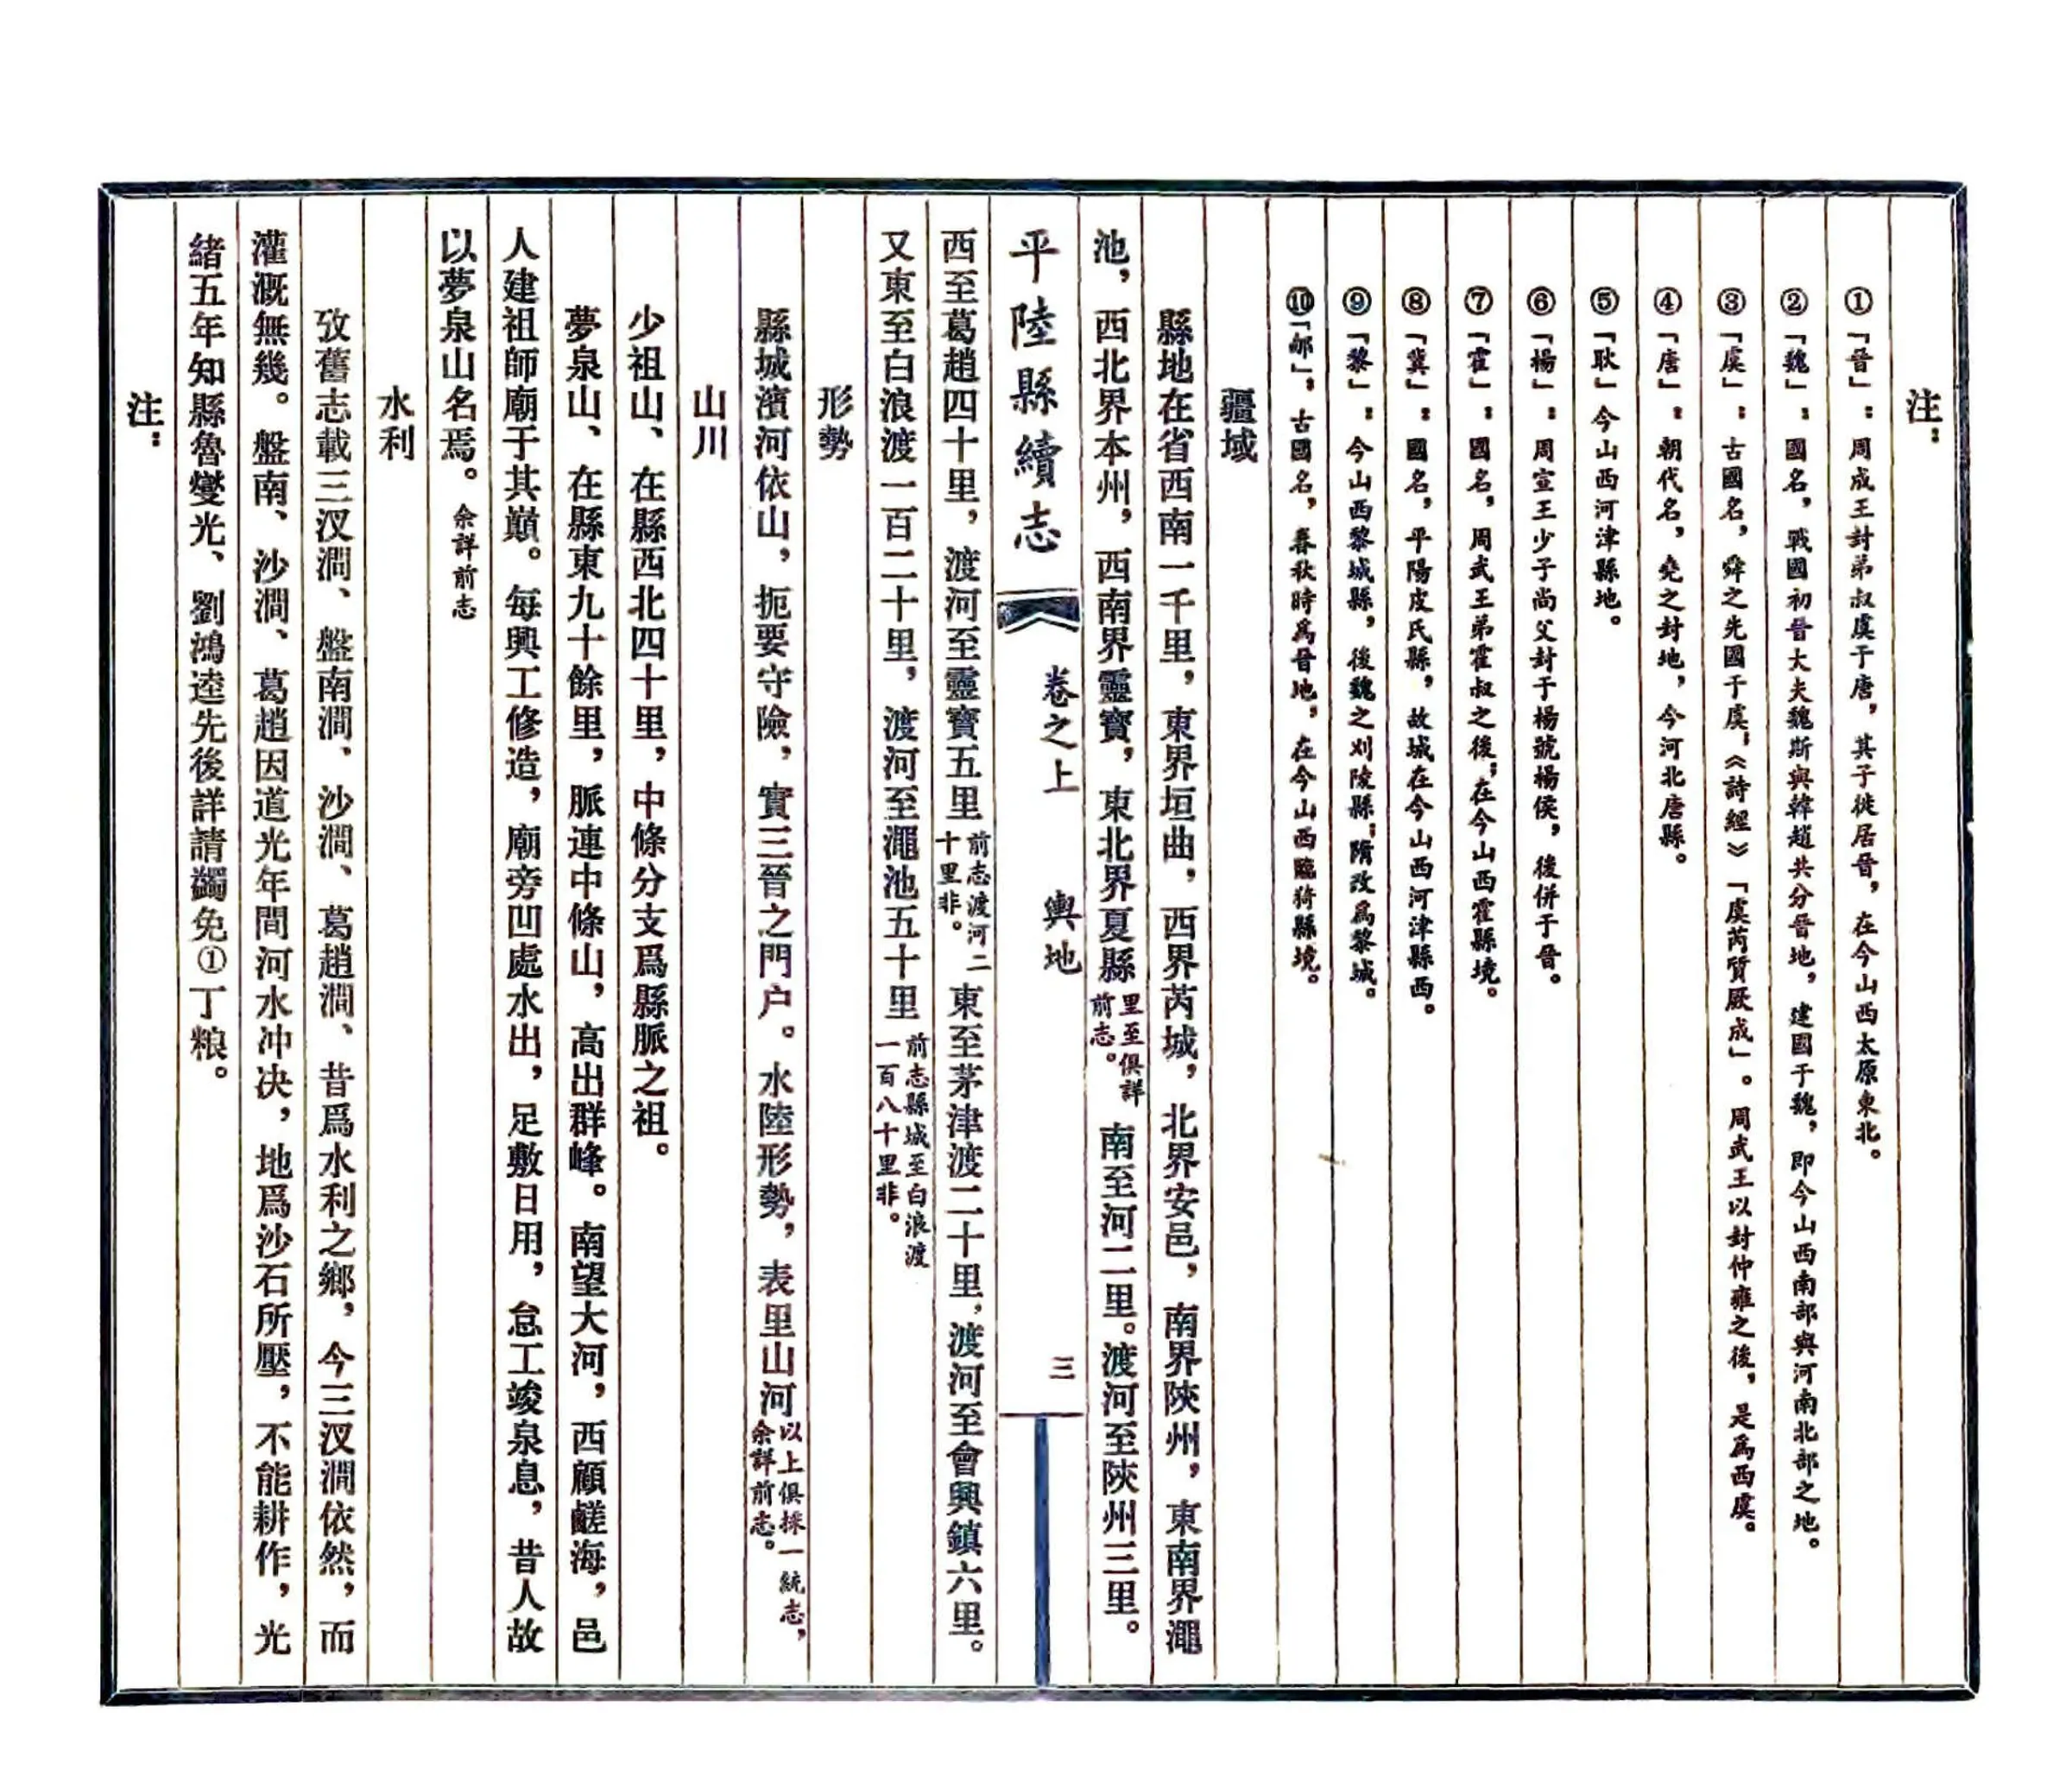 注：
①「晉」：周成王封弟叔虞于唐，其子徙居晉，在今山西太原東北。
②「魏」：國名，戰國初晉大夫魏斯與韓趙共分晉地，建國于魏，即今山西南部與河南北部之地。
③「虞」：古國名，舜之先國于虞；《詩經》「虞芮質厥成」。周武王以封仲雍之後，是爲西虞。
④「唐」：朝代名，堯之封地，今河北唐縣。
⑤「耿」今山西河津縣地。
⑥「楊」：周宣王少子尚父封于楊號楊侯，後併于晉。
⑦「霍」：國名，周武王弟霍叔之後；在今山西霍縣境。
⑧「冀」：國名，平陽皮氏縣，故城在今山西河津縣西。
⑨「黎」：今山西黎城縣，後魏之刈陵縣；隋改爲黎城。
⑩「郇」：古國名，春秋時爲晉地，在今山西臨猗縣境。
疆域
縣地在省西南一千里，東界垣曲，西界芮城，北界安邑，南界陝州，東南界澠
池，西北界本州，西南界靈寶，東北界夏縣里至俱詳前志。南至河二里。渡河至陝州三里。
平陸縣續志 卷之上 輿地 三
西至葛趙四十里，渡河至靈寶五里前志渡河二十里非。東至茅津渡二十里，渡河至會興鎮六里。
又東至白浪渡一百二十里，渡河至澠池五十里前志縣城至白浪渡一百八十里非。
形勢
縣城濱河依山，扼要守險，實三晉之門户。水陸形勢，表里山河以上俱採一統志，余詳前志。
山川
少祖山、在縣西北四十里，中條分支爲縣脈之祖。
夢泉山、在縣東九十餘里，脈連中條山，高出群峰。南望大河，西顧鹺海，邑
人建祖師廟于其巔。每興工修造，廟旁凹處水出，足敷日用，怠工竣泉息，昔人故
以夢泉山名焉。余詳前志
水利
攷舊志載三汊澗、盤南澗、沙澗、葛趙澗、昔爲水利之鄉，今三汊澗依然，而
灌溉無幾。盤南、沙澗、葛趙因道光年間河水冲决，地爲沙石所壓，不能耕作，光
緒五年知縣魯燮光、劉鴻逵先後詳請蠲免①丁粮。
注：